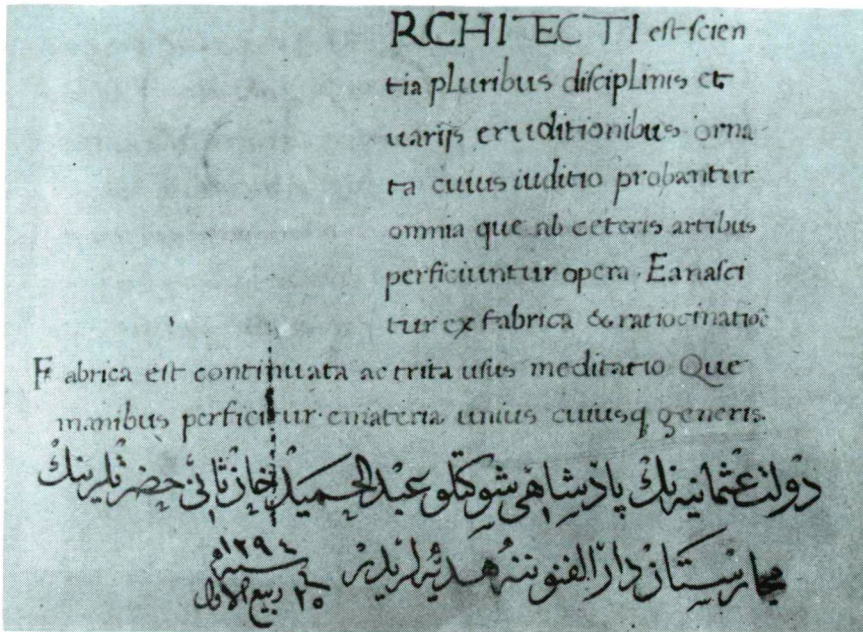 RCHITECTI est scien
tia pluribus disciplinis et
uarijs eruditionibus orna
ta cuius iuditio probantur
omnia que ab ceteris artibus
perficiuntur opera. Ea nasci
tur ex fabrica & ratiocinatioe
Fabrica est continuata ac trita usus meditatio Que
manibus perficitur e materia unius cuiusq generis.
دولت عثمانیه نك پادشاهی شوكتلو عبد الحمید خان ثانی حضرتلرینك
مجارستان دار الفنوننه هدیه لریدر
سنه ١٢٩٤
٢٥ ربیع الاول